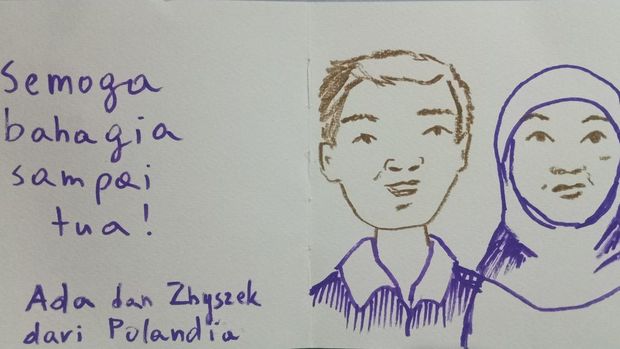 Semoga
bahagia
sampai
tua!
Ada dan Zbyszek
dari Polandia